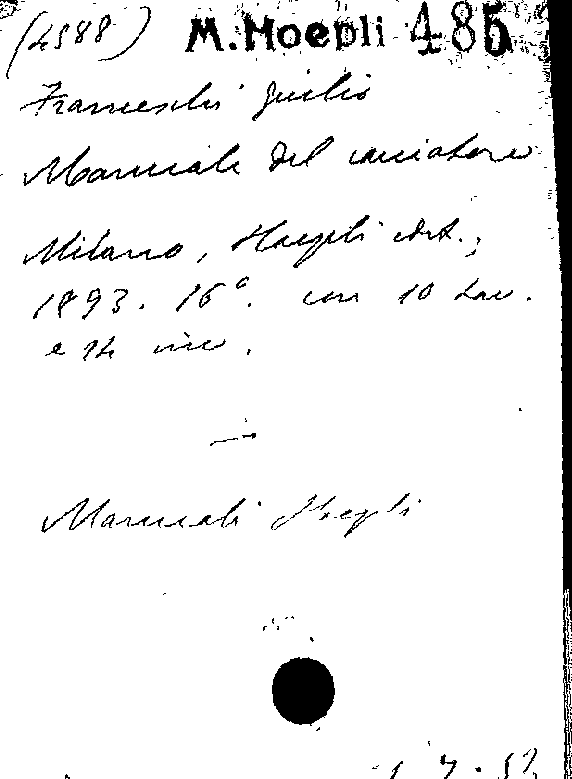 (4588) M. Hoepli 485
Franceschi Giulio
Manuale del cacciatore
Milano, Hoepli edit.,
1893. 16º. con 10 tav.
e 14 inc.
Manuali Hoepli